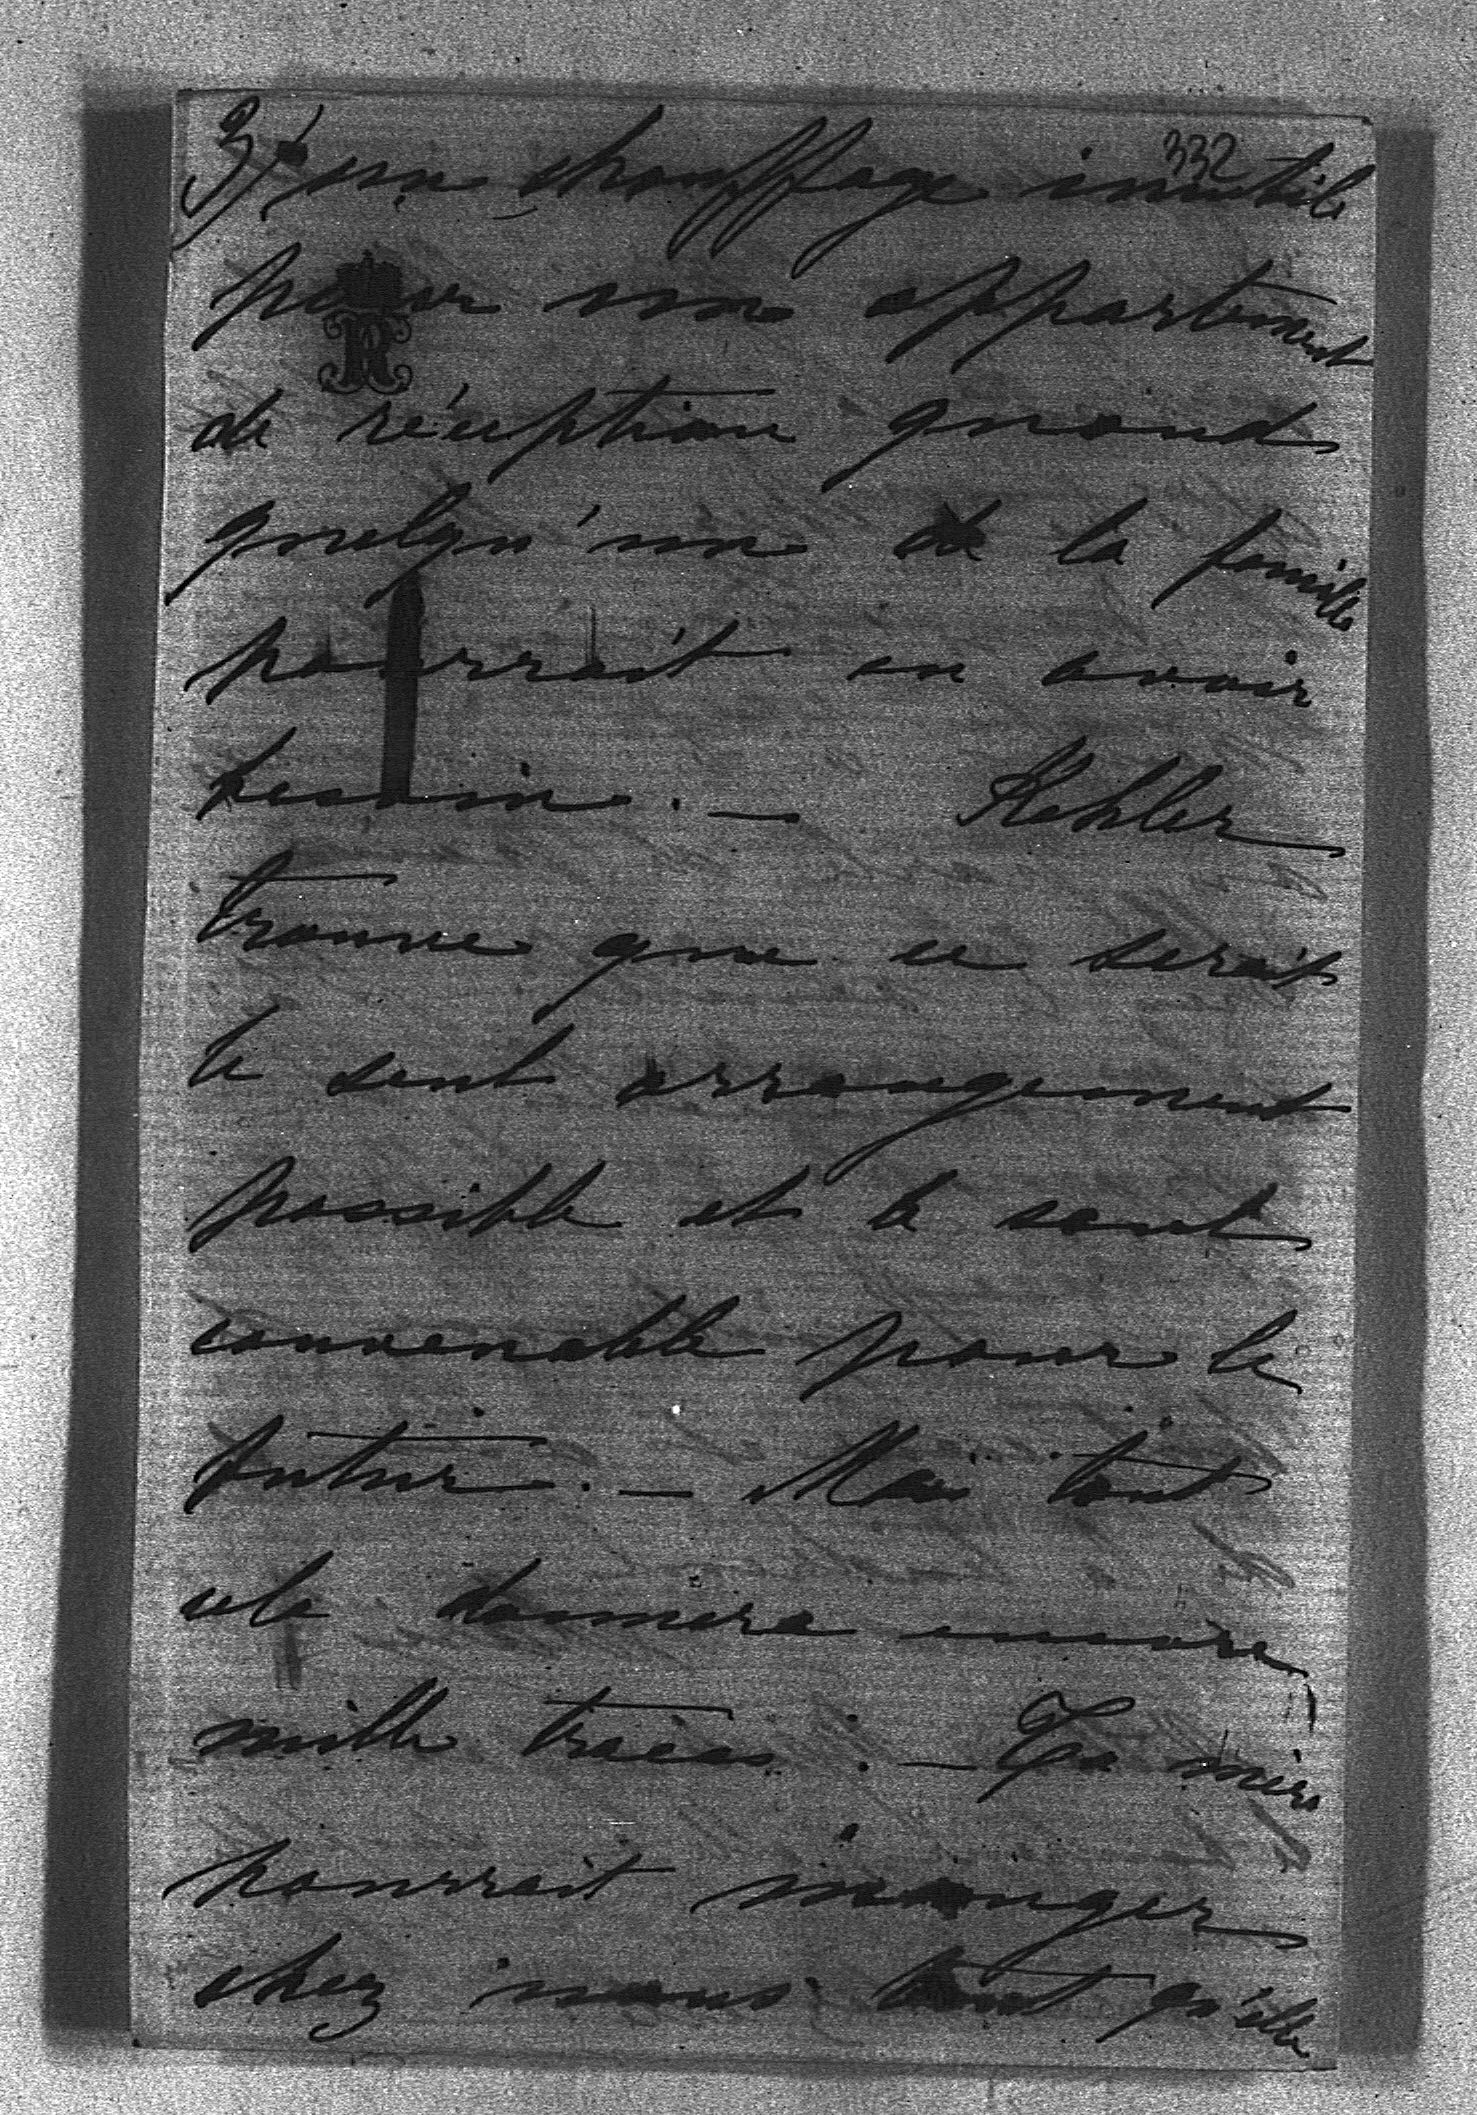 332
3/ un chauffage inutile
pour un appartement
de réception quand
quelqu'un de la famille
pourrait en avoir
besoin. — Kehler
trouve que ce serait
le seul arrangement
possible et le seul
convenable pour le
futur. — Mais tout
cela donnera encore
mille tracas. — Ta mère
pourrait manger
chez nous tant qu'elle